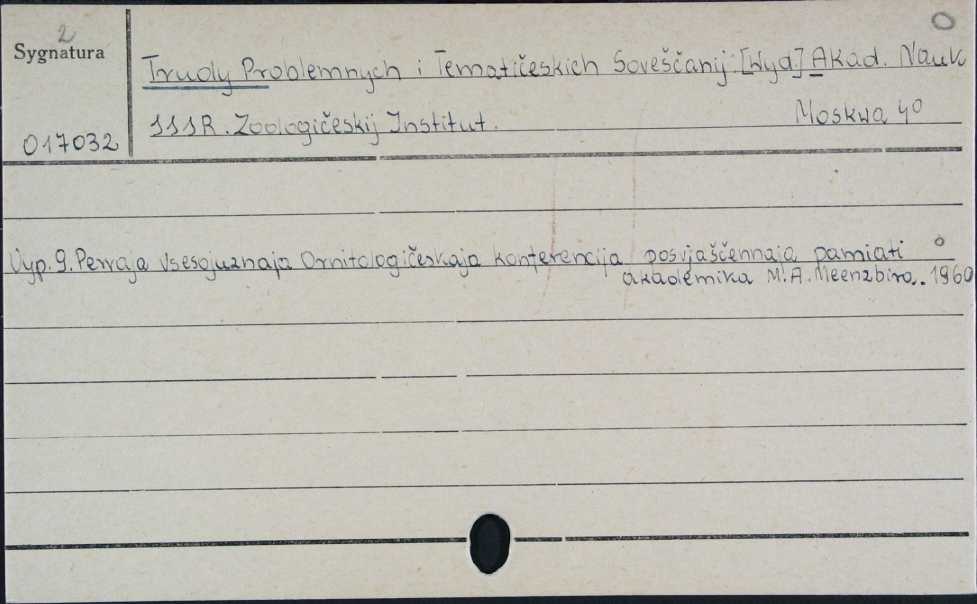 2
Sygnatura
017032
Trudy Problemnych i Tematičeskich Soveščanij. [Wyd.] Akad. Nauk
SSSR. Zoologičeskij Institut.
Moskwa 40
Vyp. 9. Pervaja Vsesojuznaja Ornitologičeskaja konferencija posvjaščennaja pamiati
akademika M. A. Meenzbira.. 1960